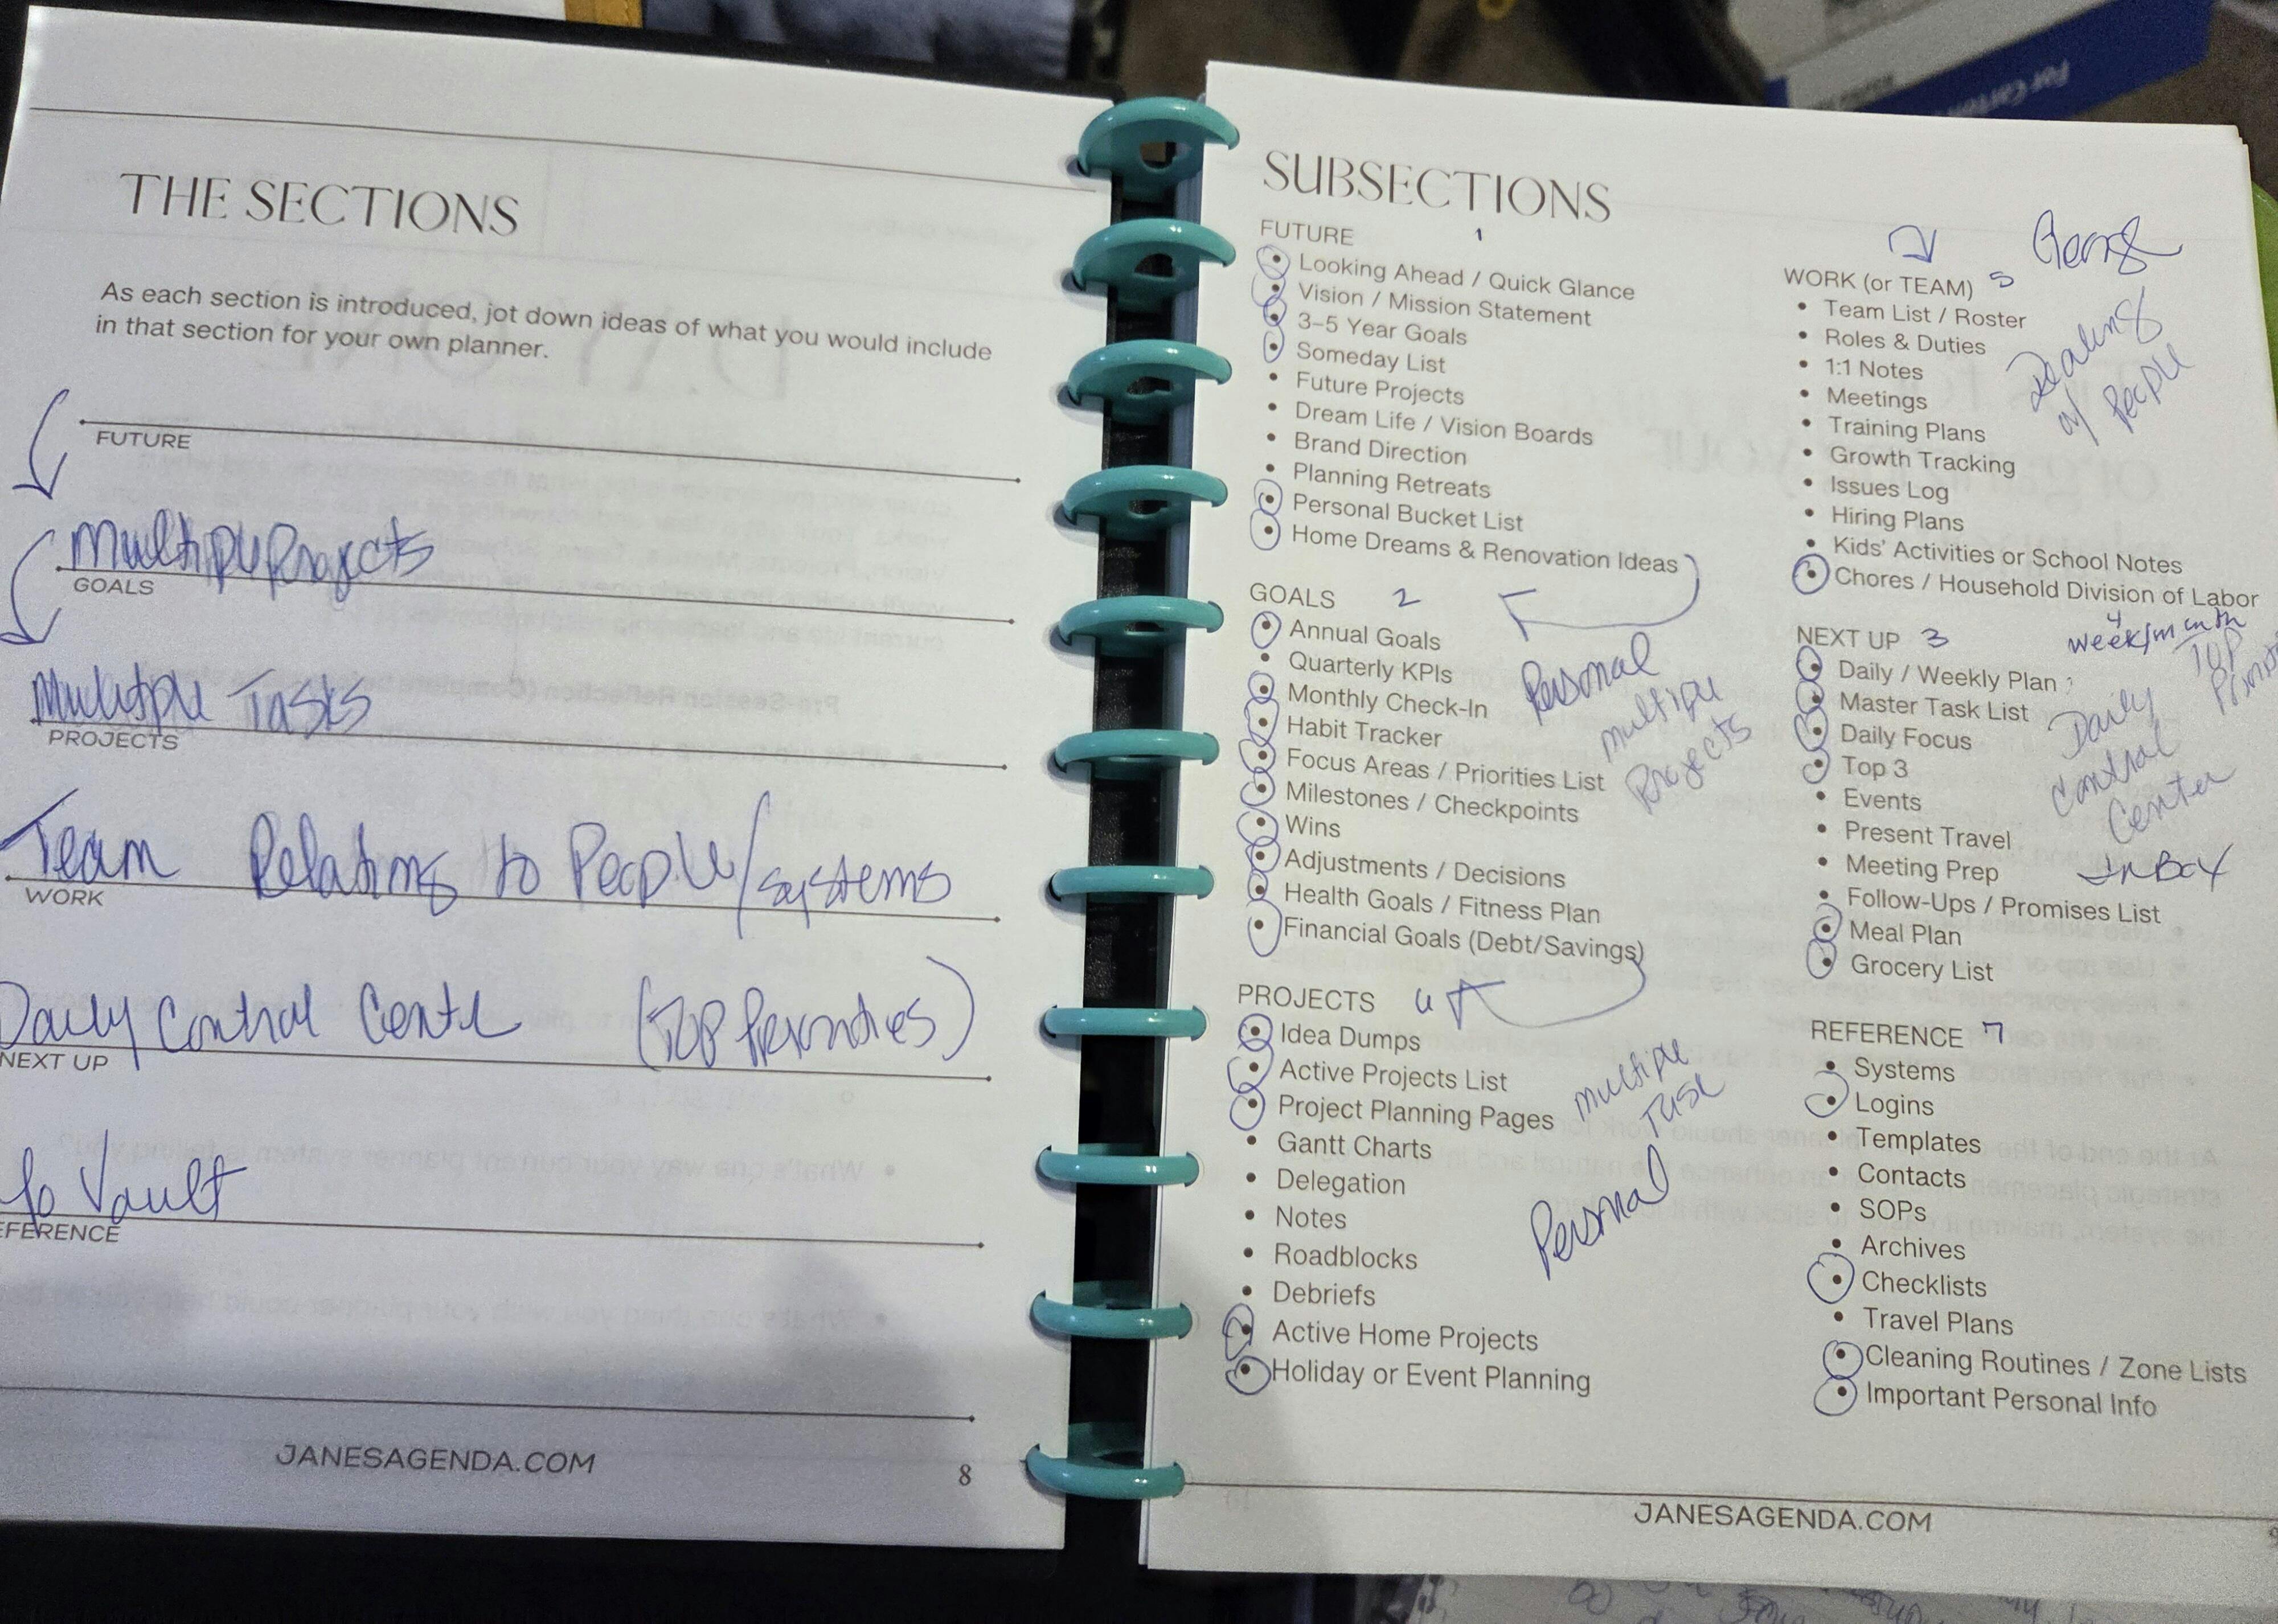 THE SECTIONS
As each section is introduced, jot down ideas of what you would include
in that section for your own planner.
FUTURE
Multiple Projects
GOALS
Multiple Tasks
PROJECTS
Team Relating to People/systems
WORK
Daily Control Cent (Top Priorities)
NEXT UP
fo Vault
EFERENCE
JANESAGENDA.COM
8
SUBSECTIONS
FUTURE 1
• Looking Ahead / Quick Glance
• Vision / Mission Statement
• 3–5 Year Goals
• Someday List
• Future Projects
• Dream Life / Vision Boards
• Brand Direction
• Planning Retreats
• Personal Bucket List
• Home Dreams & Renovation Ideas
GOALS 2
• Annual Goals
• Quarterly KPIs
• Monthly Check-In
• Habit Tracker
• Focus Areas / Priorities List
• Milestones / Checkpoints
• Wins
• Adjustments / Decisions
• Health Goals / Fitness Plan
• Financial Goals (Debt/Savings)
Personal
multiple
Projects
PROJECTS
• Idea Dumps
• Active Projects List
• Project Planning Pages
• Gantt Charts
• Delegation
• Notes
• Roadblocks
• Debriefs
• Active Home Projects
• Holiday or Event Planning
multiple
Task
Personal
WORK (or TEAM) 5
• Team List / Roster
• Roles & Duties
• 1:1 Notes
• Meetings
• Training Plans
• Growth Tracking
• Issues Log
• Hiring Plans
• Kids' Activities or School Notes
• Chores / Household Division of Labor
Dealing
w/ People
NEXT UP 3
• Daily / Weekly Plan
• Master Task List
• Daily Focus
• Top 3
• Events
• Present Travel
• Meeting Prep
• Follow-Ups / Promises List
• Meal Plan
• Grocery List
4
week/month
Top
Daily
Control
Center
InBox
REFERENCE 7
• Systems
• Logins
• Templates
• Contacts
• SOPs
• Archives
• Checklists
• Travel Plans
• Cleaning Routines / Zone Lists
• Important Personal Info
JANESAGENDA.COM